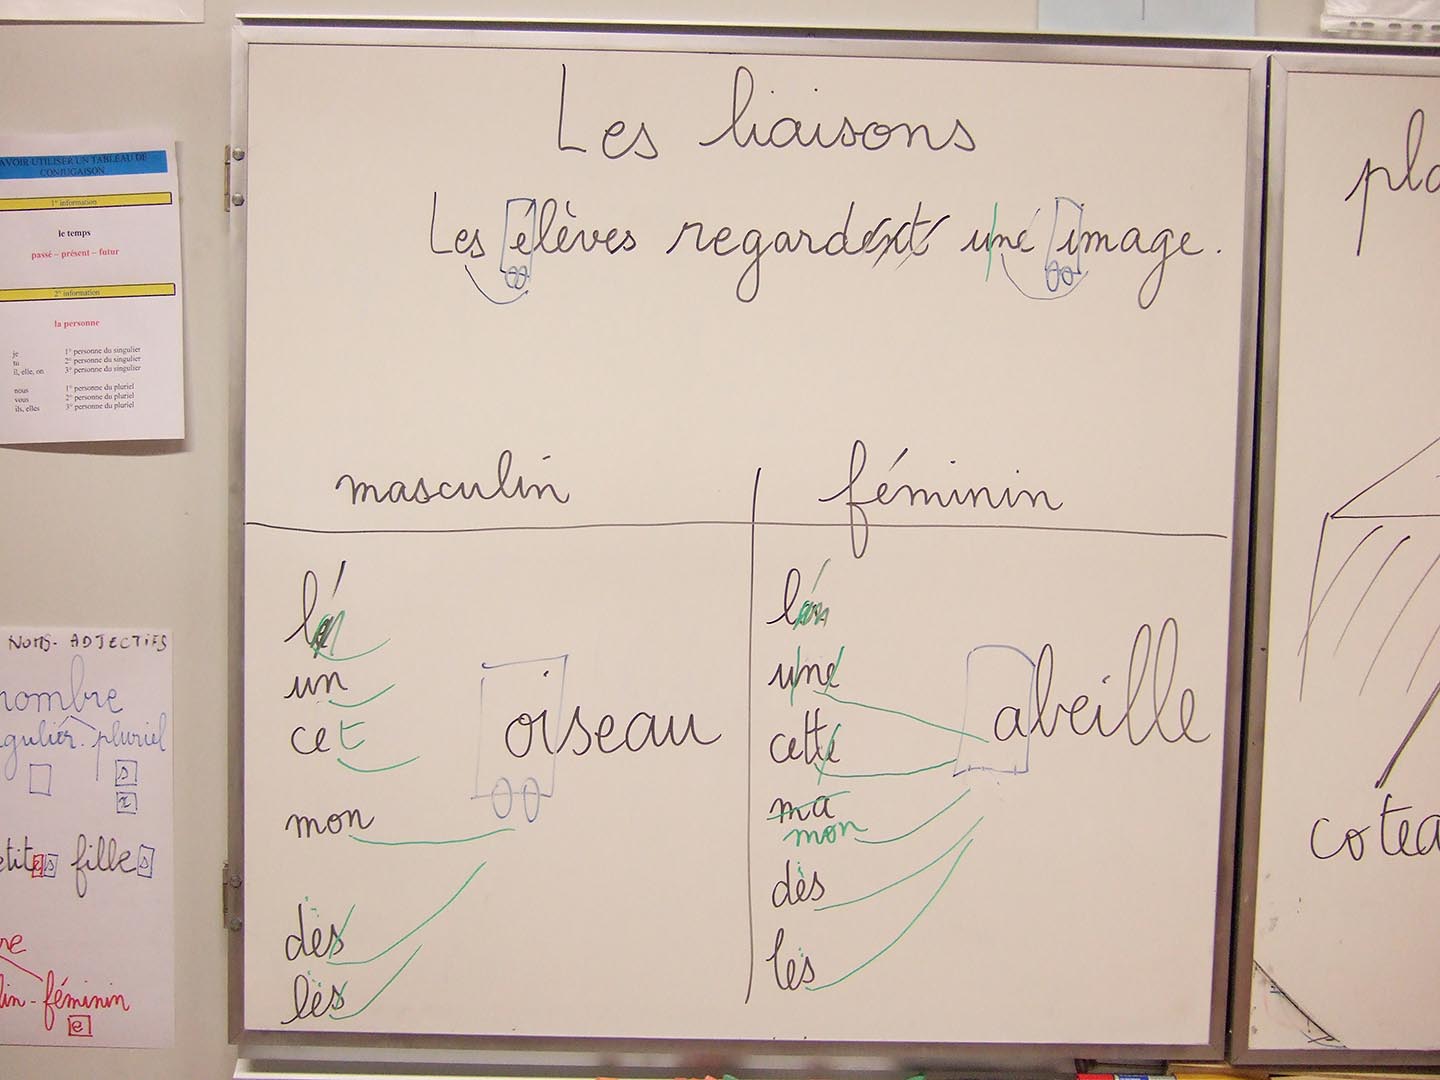 Les liaisons
Les élèves regardent une image.
masculin
féminin
l'
un
cet
mon
des
les
oiseau
l'
une
cette
ma
mon
des
les
abeille
AVOIR UTILISER UN TABLEAU DE
CONJUGAISON
1° information
le temps
passé – présent – futur
2° information
la personne
je 1° personne du singulier
tu 2° personne du singulier
il, elle, on 3° personne du singulier
nous 1° personne du pluriel
vous 2° personne du pluriel
ils, elles 3° personne du pluriel
NOMS- ADJECTIFS
nombre
gulier. pluriel
s
x
etites filles
re
lin - féminin
e
pla
cotea